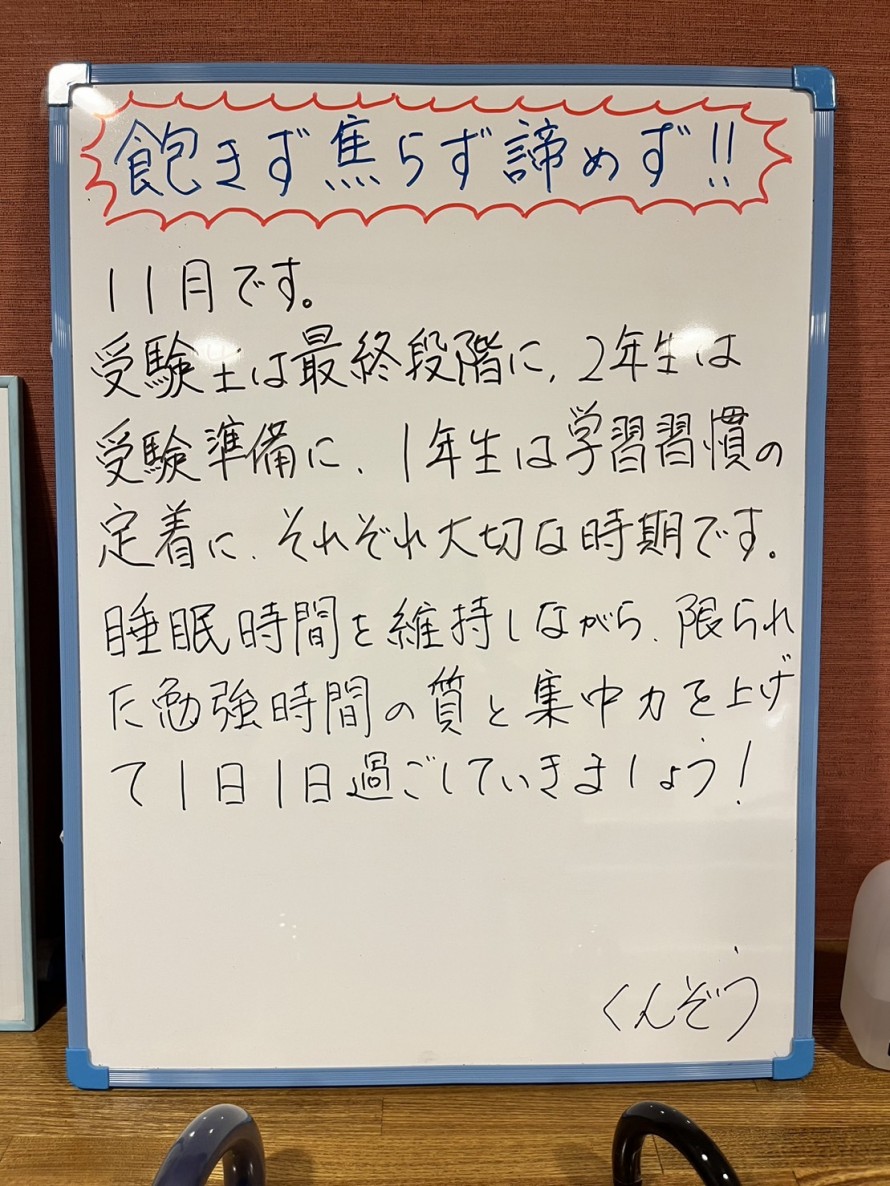 飽きず焦らず諦めず!!
11月です。
受験生は最終段階に、2年生は
受験準備に、1年生は学習習慣の
定着に、それぞれ大切な時期です。
睡眠時間を維持しながら、限られ
た勉強時間の質と集中力を上げ
て1日1日過ごしていきましょう!
くんぞう